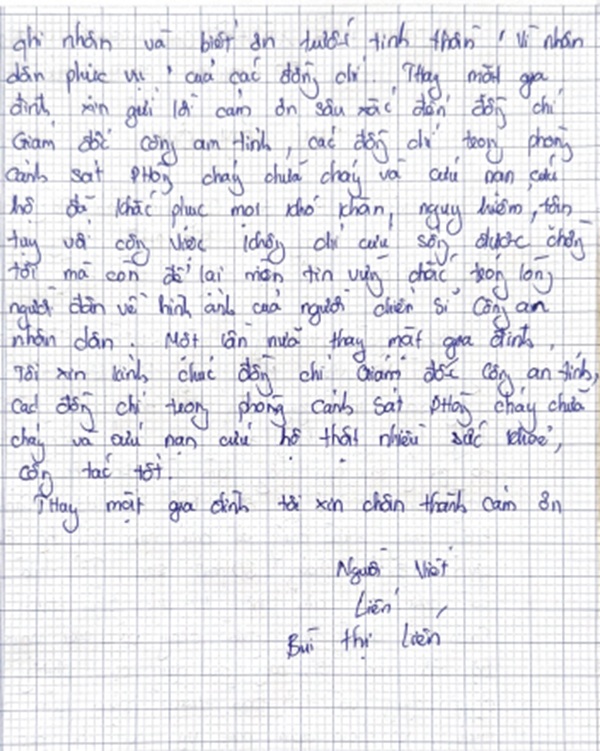 ghi nhân và biết ơn tước tinh thân "vì nhân
dân phục vụ" của các đồng chí. Thay mặt gia
đình xin gửi lời cảm ơn sâu sắc đến đồng chí
Giám đốc công an tỉnh, các đồng chí trong phòng
Cảnh sát PHòng cháy chữa cháy và cứu nạn cứu
hộ đã khắc phục mọi khó khăn, nguy hiểm, tận
tụy với công việc không chỉ cứu sống được chồng
tôi mà còn để lại niềm tin vững chắc trong lòng
người dân về hình ảnh của người chiến sĩ Công an
nhân dân. Một lần nữa thay mặt gia đình,
Tôi xin kính chúc đồng chí Giám đốc Công an tỉnh,
Các đồng chí trong phòng Cảnh sát PHòng cháy chữa
cháy và cứu nạn cứu hộ thật nhiều sức khỏe,
công tác tốt.
THay mặt gia đình tôi xin chân thành cảm ơn
Người Viết
Liên
Bùi thị Liên